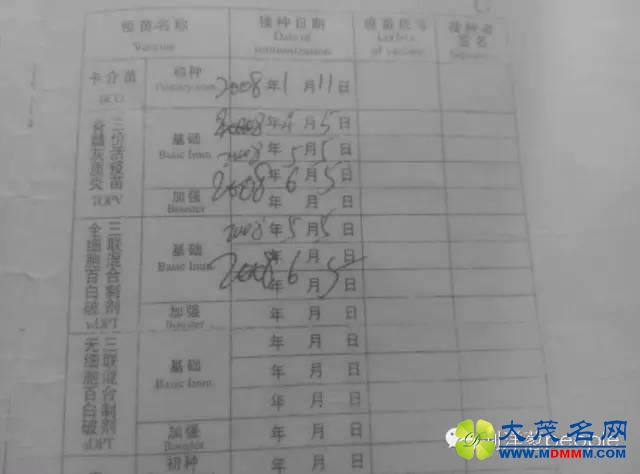 疫苗名称 接种日期 疫苗批号 接种者
Vaccine Date of immunization Lot No. of vaccine 签名
卡介苗 BCG 初种 2008年1月11日
三价活疫苗 脊髓灰质炎 TOPV 基础 Basic Imm. 2008年4月5日
2008年5月5日
2008年6月5日
加强 Booster 年 月 日
三联混合制剂 全细胞百白破 wDPT 基础 Basic Imm. 2008年5月5日
年 月 日
2008年6月5日
加强 Booster 年 月 日
三联混合制剂 无细胞百白破 aDPT 基础 Basic Imm. 年 月 日
年 月 日
年 月 日
加强 Booster 年 月 日
初种 年 月 日
people
大茂名网
WWW.MDMMM.COM